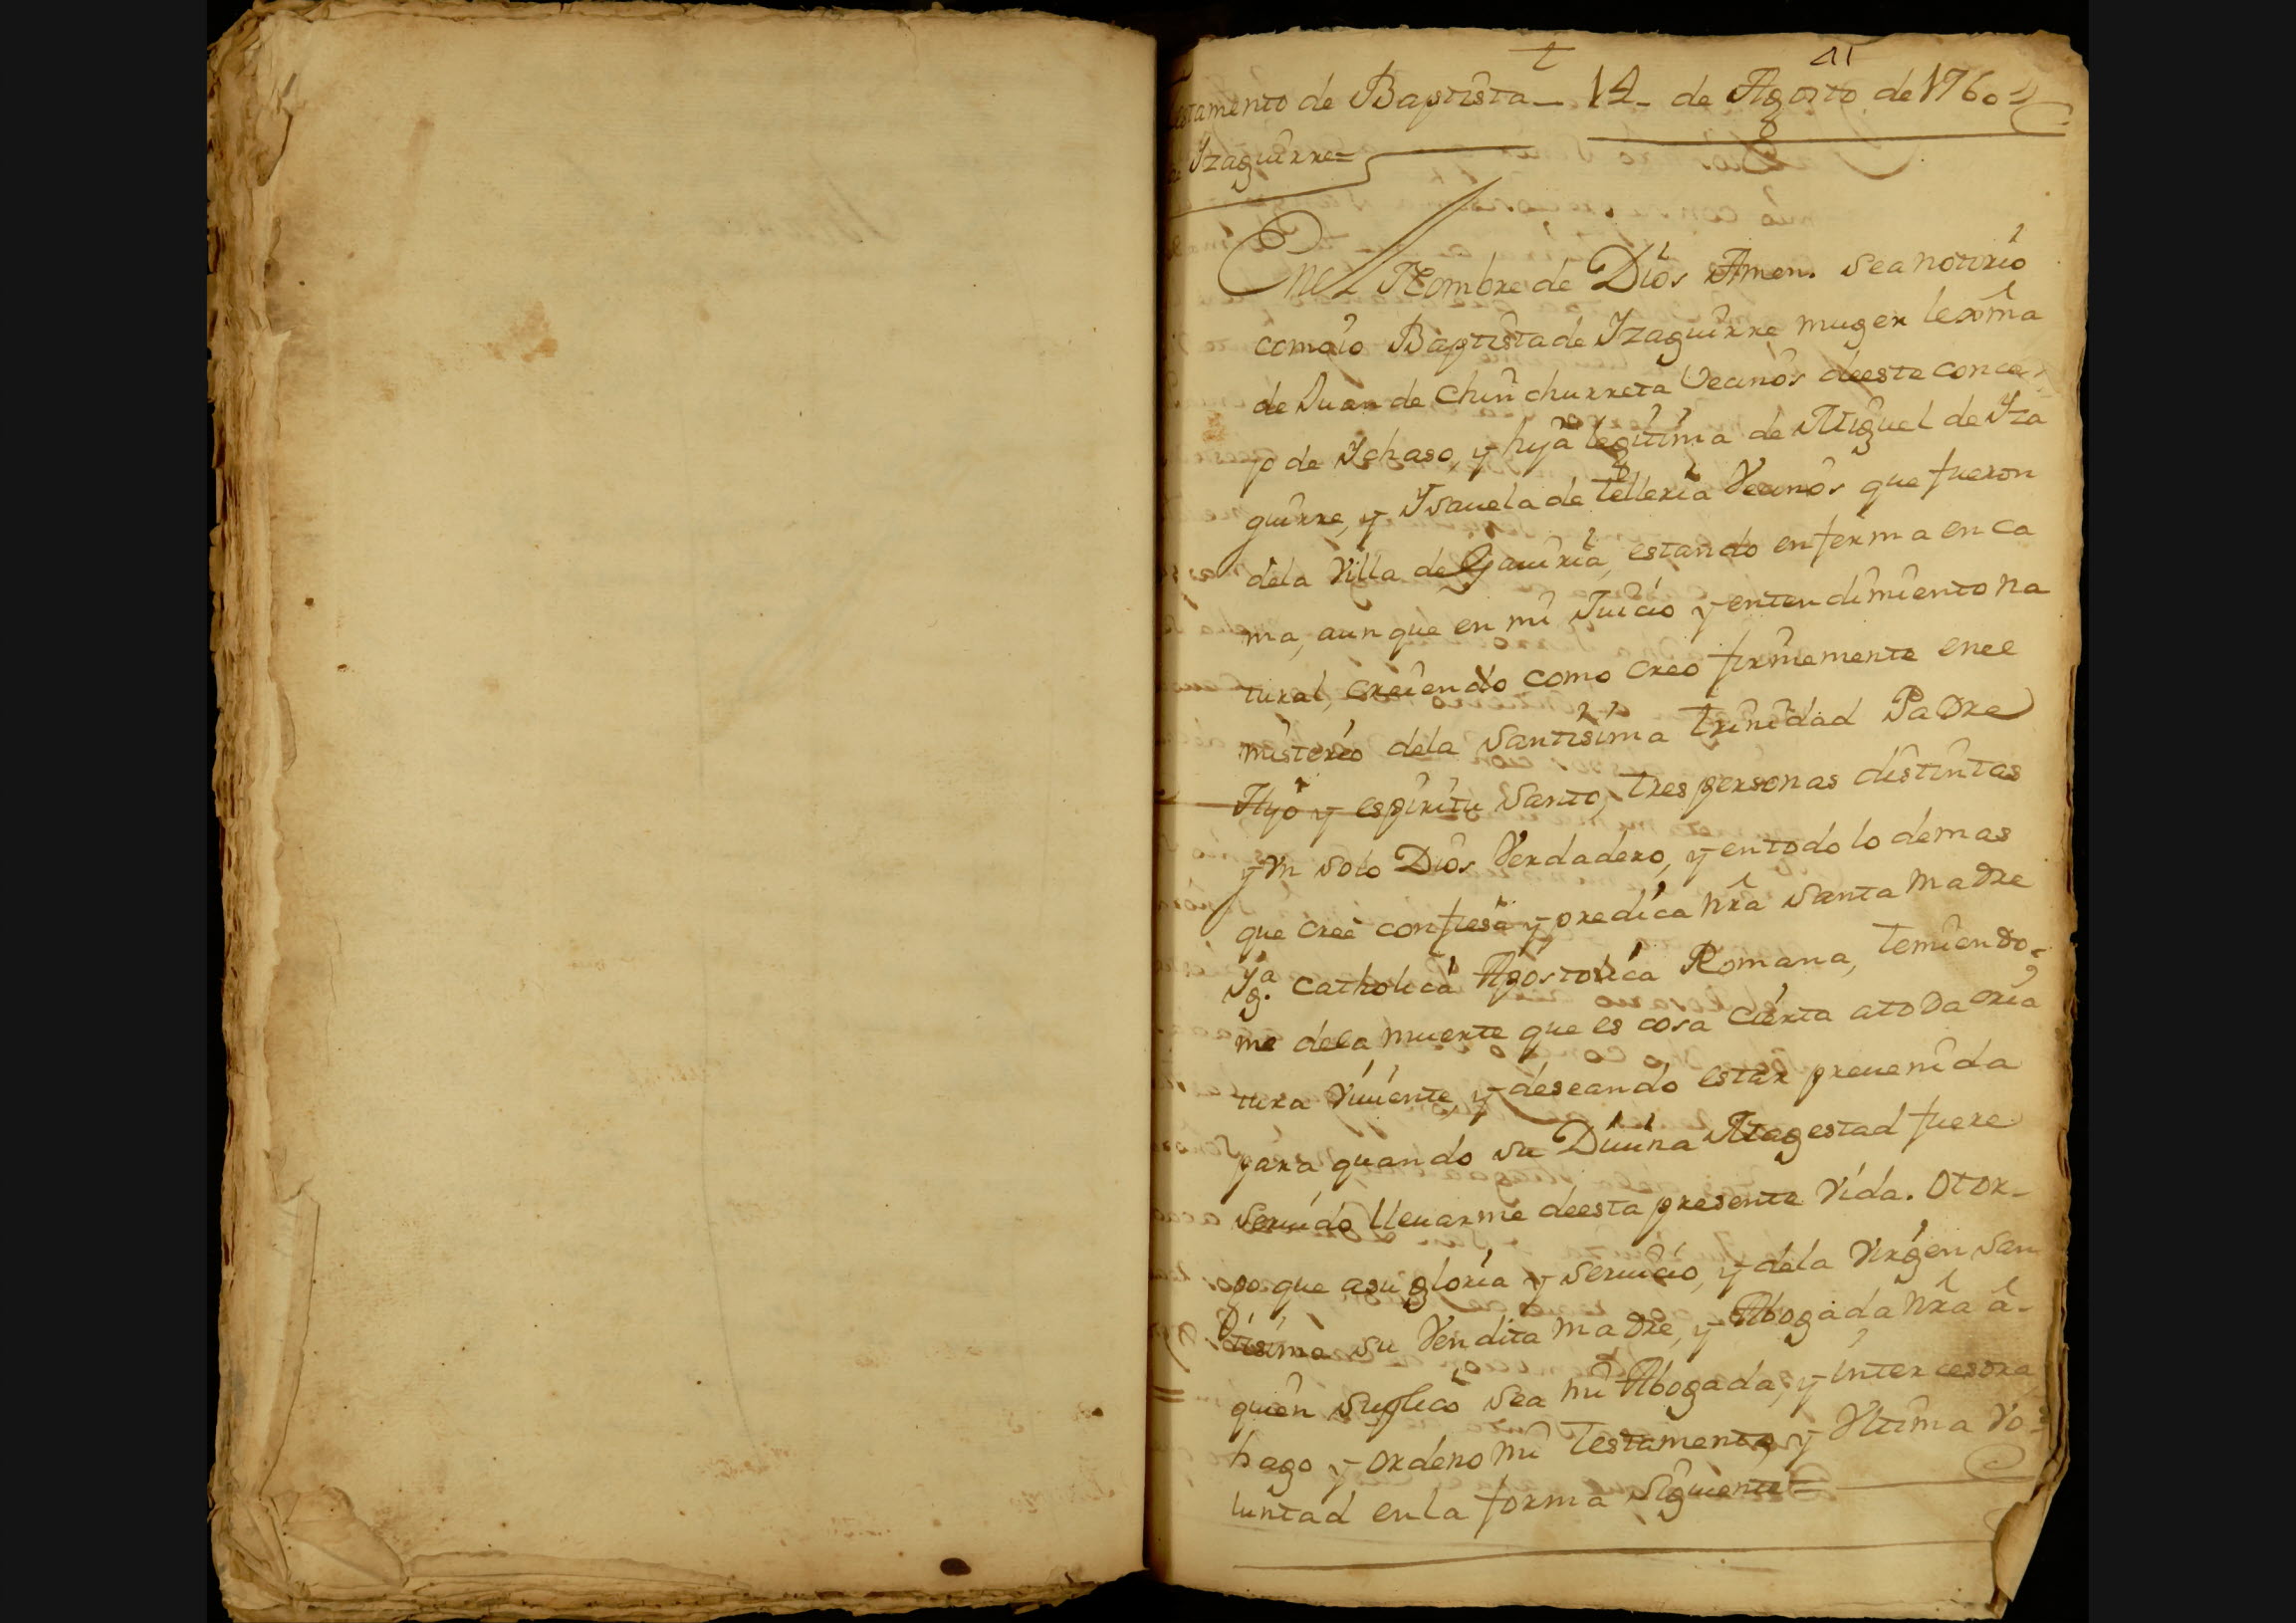 41
Testamento de Baptista - 14 - de Agosto de 1760
de Yzaguirre =
En el Nombre de Dios Amen. Sea notorio
como io Baptista de Yzaguirre muger lexma
de Juan de Chinchurreta Vecinos deeste conce
jo de Ychaso, y hija legitima de Miguel de Yza
guirre, y Ysauela de telleria Vecinos que fueron
dela Villa de Gauiria, estando enferma en ca
ma, aunque en mi Juicio y entendimiento na
tural, creiendo como creo firmemente enel
misterio dela Santisima trinidad Padre
Hijo y espiritu Santo, tres personas distintas
y Vn solo Dios Verdadero, y entodo lo demas
que cree confiesa y predica nra Santa Madre
Yga. Catholica Apostolica Romana, temiendo-
me dela muerte que es cosa cierta atoda cria
tura Viuiente, y deseando estar preuenida
para quando su Diuina Magestad fuere
seruido lleuarme deesta presente Vida. Otor-
go que asu gloria y seruicio, y dela Virgen San
tisima su Vendita Madre, y Abogada nra â-
quien suplico sea mi Abogada, y intercesora
hago y ordeno mi testamento, y Vltima Vo-
luntad enla forma siguiente =